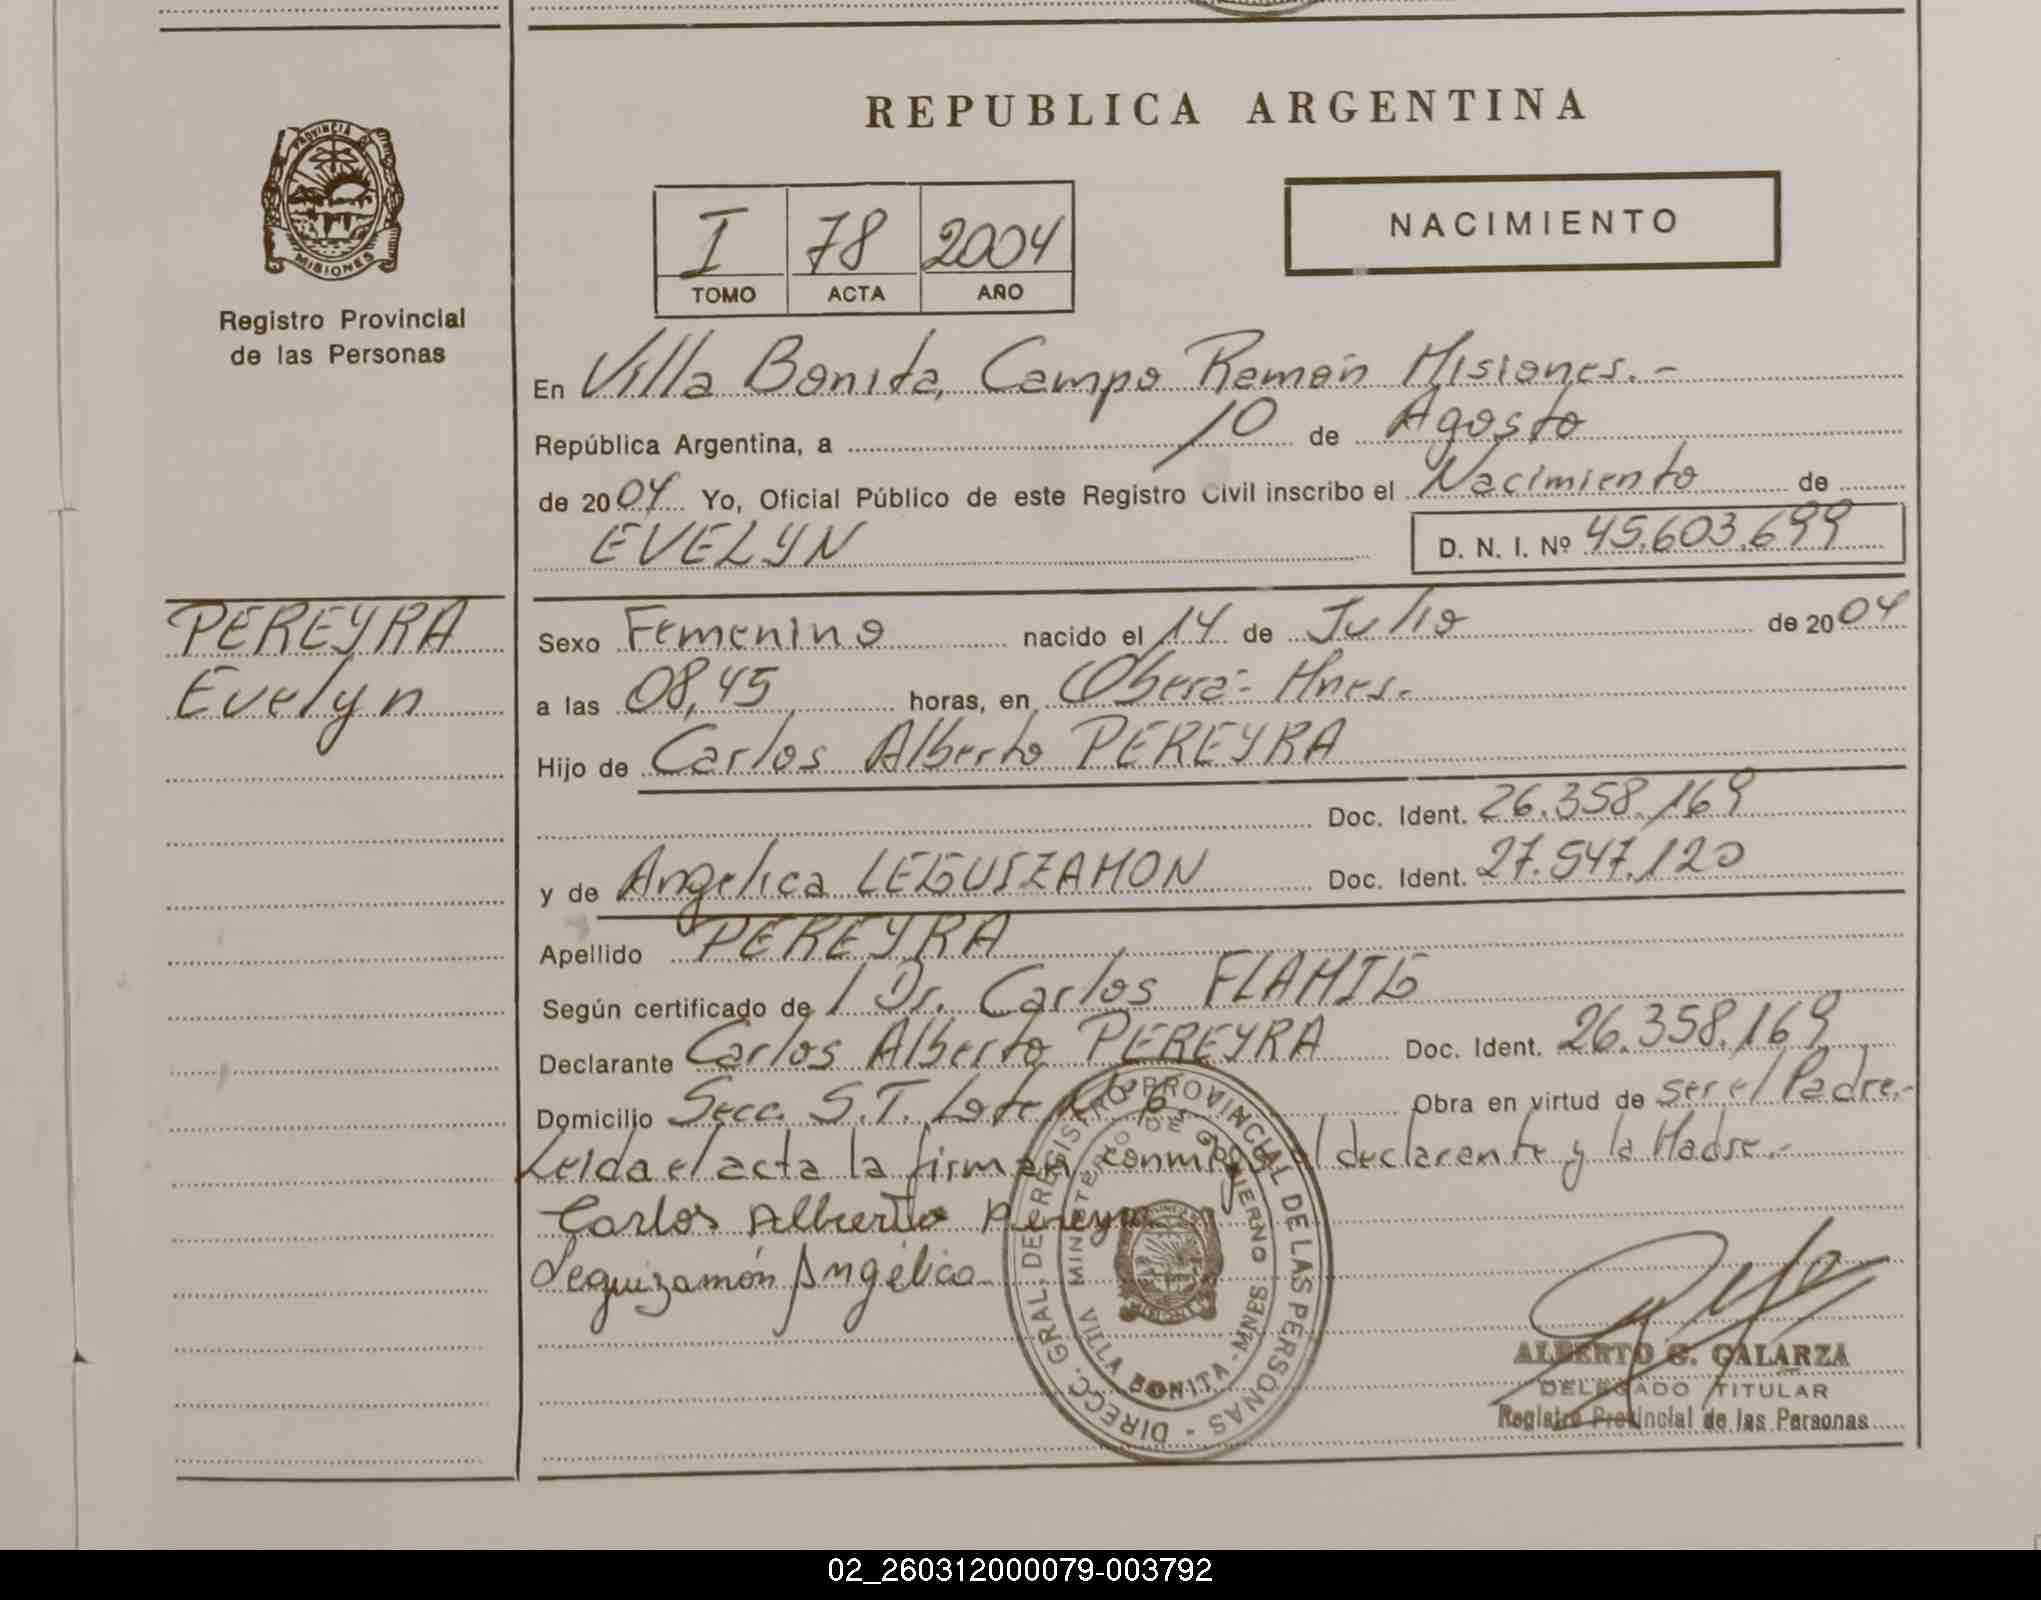 REPUBLICA ARGENTINA
PROVINCIA DE
MISIONES
Registro Provincial
de las Personas
I 78 2004
TOMO ACTA AÑO
NACIMIENTO
En Villa Bonita, Campo Ramón Misiones.-
República Argentina, a 10 de Agosto
de 2004 Yo, Oficial Público de este Registro Civil inscribo el Nacimiento de
EVELYN D. N. I. Nº 45.603.699
PEREYRA
Evelyn
Sexo Femenino nacido el 14 de Julio de 2004
a las 08,45 horas, en Oberá- Mnes.
Hijo de Carlos Alberto PEREYRA
Doc. Ident. 26.358.169
y de Angelica LEGUIZAMON Doc. Ident. 27.547.120
Apellido PEREYRA
Según certificado de l Dr. Carlos
Declarante Carlos Alberto PEREYRA Doc. Ident. 26.358.169
Domicilio Secc. S.T. Lote Obra en virtud de ser el Padre.-
Leida el acta la firman conmigo el declarante y la Madre.-
Carlos Alberto Pereyra
Leguizamón Angélica
DIRECC. GRAL. DE REGISTRO PROVINCIAL DE LAS PERSONAS -
MINISTERIO DE GOBIERNO
VILLA BONITA - MNES
ALBERTO G. GALARZA
DELEGADO TITULAR
Registro Provincial de las Personas
02_260312000079-003792